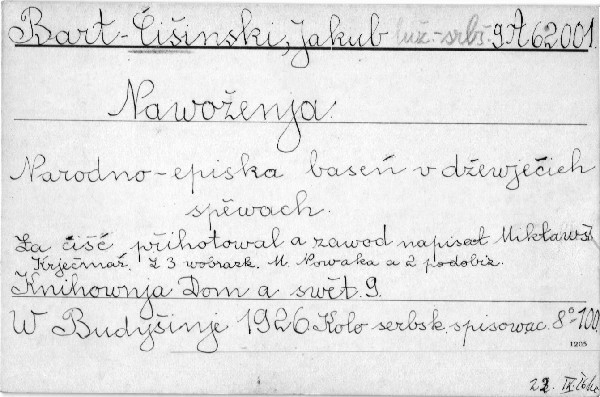 Bart-Čišinski, Jakub luž.-srbs. 9A62001.
Nawoženja.
Narodno-episka baseń v dźewjećich
spěwach.
Za ćišć přihotował a zawod napisał Mikławš
Krječmař. Z 3 wobrazk. M. Nowaka a 2 podobiz.
Knihownja Dom a swět. 9.
W Budyšinje 1926 Koło serbsk. spisowac. 8°-100
1205
22. IX.